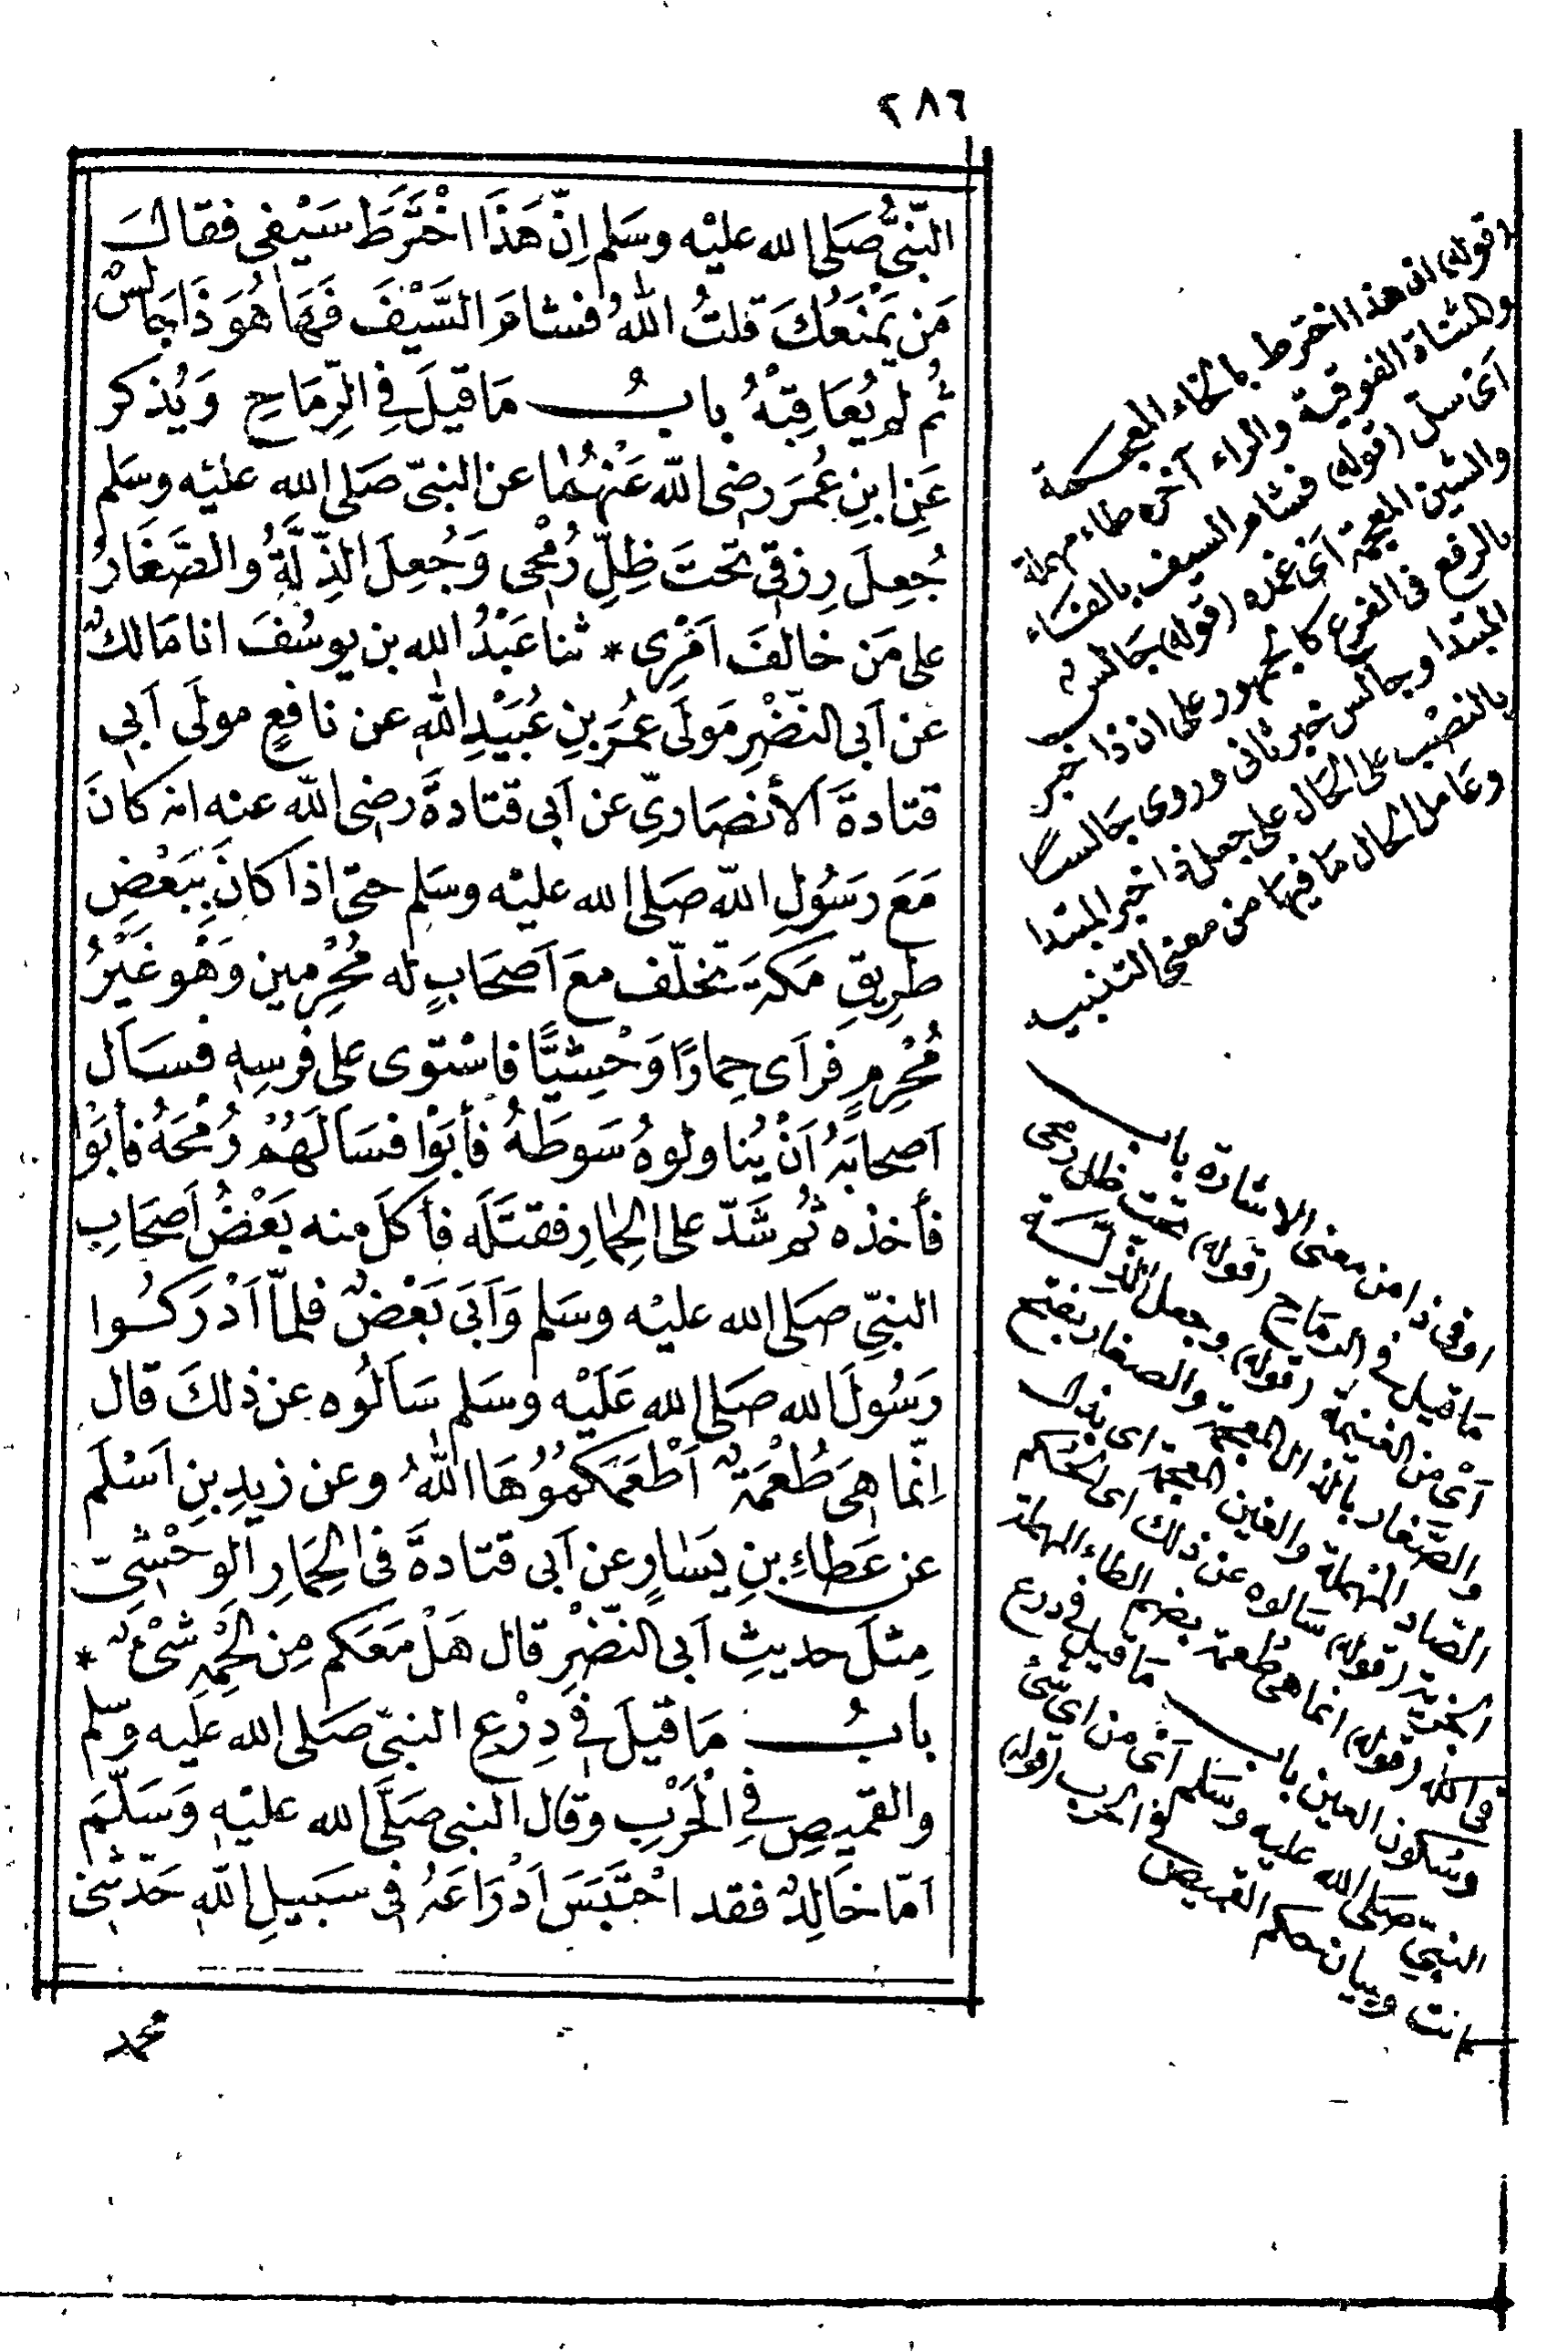 ٢٨٦
النّبىُّ صَلى الله عليْه وسَلم اِنّ هَذَا اخْتَرَطَ سَيْفى فقالَ
مَن يَمْنَعُكَ قلتُ اللهُ فشامَ السَّيْفَ فَهَا هُوَ ذَا جَالسٌ
ثُم لم يُعَاقِبْهُ بابُ مَا قيلَ فِى الرِّمَاحِ وَيُذكر
عَنِ ابنِ عُمَرَ رضى الله عَنْهُمَا عن النبىّ صَلى الله عليْه وسَلم
جُعِلَ رِزقى تحتَ ظِلِّ رُمْحى وَجُعِلَ الذِّلَّةُ والصَّغَارُ
على مَن خالفَ اَمْرِى * ثنا عَبْدُ الله بن يوسُفَ انا مَالكٌ
عن اَبى النّضْرِ مَولَى عُمَرَ بنِ عُبَيْدِ اللهِ عن نافعٍ مولَى اَبى
قتادةَ الأنصَارىِّ عن اَبى قتادةَ رضى الله عنه انه كانَ
مَعَ رسَوُلِ الله صَلى الله عليْه وسَلم حتى اذا كانَ بِبَعْضِ
طريقِ مَكةَ تخلّف معَ اَصحَابٍ له مُحْرِمين وَهُو غَيْرُ
مُحْرِمٍ فرَاَى حِمارًا وَحْشِيًّا فاسْتوى على فرسِهِ فسَاَل
اَصحابَهُ اَنْ يُناولوهُ سَوطَهُ فأبَوْا فسَاَلَهُمْ رُمْحَهُ فأبَوْا
فأخذه ثُم شَدّ على الحِمارِ فقتَلَه فأكلَ منه بَعْضُ اَصحَابِ
النبىِّ صَلى الله عليْه وسَلم وَاَبَى بَعْضٌ فلمّا اَدْرَكُوا
رَسُولَ الله صَلى الله عَلَيْه وسَلم سَاَلُوه عن ذلكَ قال
اِنّما هِىَ طُعْمَةٌ اَطْعَمَكُمُوُهَا اللهُ وعن زيدِ بنِ اَسْلَمَ
عن عَطاءِ بنِ يَسَارٍ عن اَبى قتادةَ فى الحِمَارِ الوحْشِىّ
مِثلَ حديثِ اَبى النّضْرِ قال هَلْ مَعَكم مِن لَحْمِهِ شىْءٌ *
بابُ مَا قيلَ فِى دِرْعِ النبىّ صَلى الله عَليه وسلم
والقميصِ فِى الْحَرْبِ وقال النبى صَلَّى الله عليْهِ وَسَلَّمَ
اَمّا خَالِدٌ فقد احْتَبَسَ اَدْرَاعَهُ فى سبَيلِ اللهِ حَدّثنى
محمد
(قوله) ان هذا اخترط بالخاء المعجمة
والمثناة الفوقية والراء آخره طاء مهملة
اَى سلّ (قوله) فشام السيف بالفاء
والشين المعجمة اَى غمده (قوله) جَالسٌ
بالرفع فى الفرع كالجمهور على ان ذا خبر
المبتدا وجالس خبر ثانى وروى جَالسًا
بالنصْب على الحَال على جعل ذا خبر المبتدا
وعَامل الحَال مَا فيهَا من معنى التنبيه
او فى ذا من معنى الاشارة باب
مَا قيل فى الرمَاح (قوله) تحت ظل رمحى
اَىْ من الغنيمَة (قوله) وجعل الذلّة
والصَّغار بالذال المعجمَة والصغار بفتح
الصَّاد المهْملة والغين المعجمة اى بذل
الجزية (قوله) سَالوه عن ذلك اى الحكم
فى اكله (قوله) انما هى طُعمة بضم الطاء المهملة
وسُكون العين باب مَا قيل فى درع
النبىّ صَلى الله عليه وسَلم اَىْ من اىّ شئ
كانت وبيان حكم القميص فى الحرب (قوله)